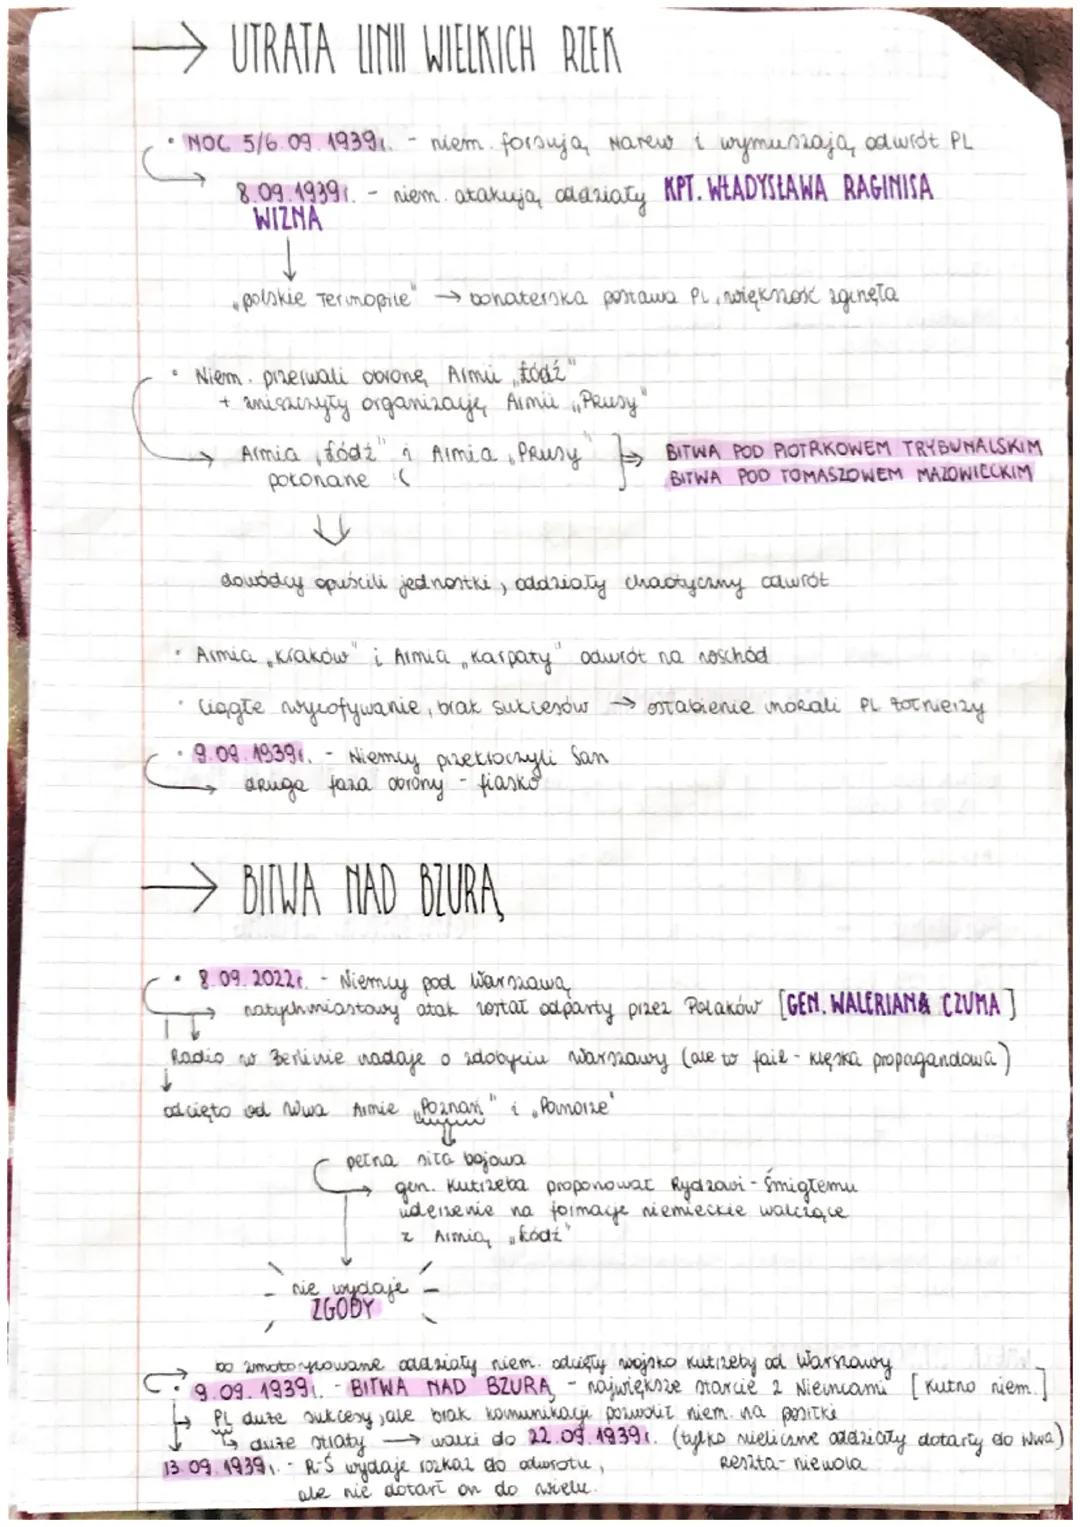 → UTRATA LINII WIELKICH RZEK
• NOC 5/6.09.1939r. - niem. forsują Narew i wymuszają odwrót PL
8.09.1939r. - niem. atakują oddziały KPT. WŁADYSŁAWA RAGINISA
WIZNA
„polskie Termopile" → bohaterska postawa PL, większość zginęła
• Niem. przerwali obronę Armii „Łódź"
+ zniszczyły organizację Armii „Prusy"
Armia „Łódź" i Armia „Prusy" ⇒ BITWA POD PIOTRKOWEM TRYBUNALSKIM
pokonane :( BITWA POD TOMASZOWEM MAZOWIECKIM
dowódcy opuścili jednostki, oddziały chaotyczny odwrót
• Armia „Kraków" i Armia „Karpaty" odwrót na wschód
• Ciągłe wycofywanie, brak sukcesów → osłabienie morali PL żołnierzy
• 9.09.1939r. - Niemcy przekroczyli San
druga faza obrony - fiasko
→ BITWA NAD BZURĄ
• 8.09.2022r. - Niemcy pod Warszawą
natychmiastowy atak został odparty przez Polaków [GEN. WALERIANA CZUMA]
Radio w Berlinie nadaje o zdobyciu Warszawy (ale to fail - klęska propagandowa)
odcięto od Wwa Armie „Poznań" i „Pomorze"
pełna siła bojowa
gen. Kutrzeba proponował Rydzowi-Śmigłemu
uderzenie na formacje niemieckie walczące
z Armią „Łódź"
nie wydaje
ZGODY
bo zmotoryzowane oddziały niem. odcięły wojsko Kutrzeby od Warszawy
• 9.09.1939r. - BITWA NAD BZURĄ - największe starcie z Niemcami [Kutno niem.]
PL duże sukcesy, ale brak komunikacji pozwolił niem. na posiłki
duże straty → walki do 22.09.1939r. (tylko nieliczne oddziały dotarły do Wwa)
13.09.1939r. - R-Ś wydaje rozkaz do odwrotu, Reszta - niewola
ale nie dotarł on do wielu.